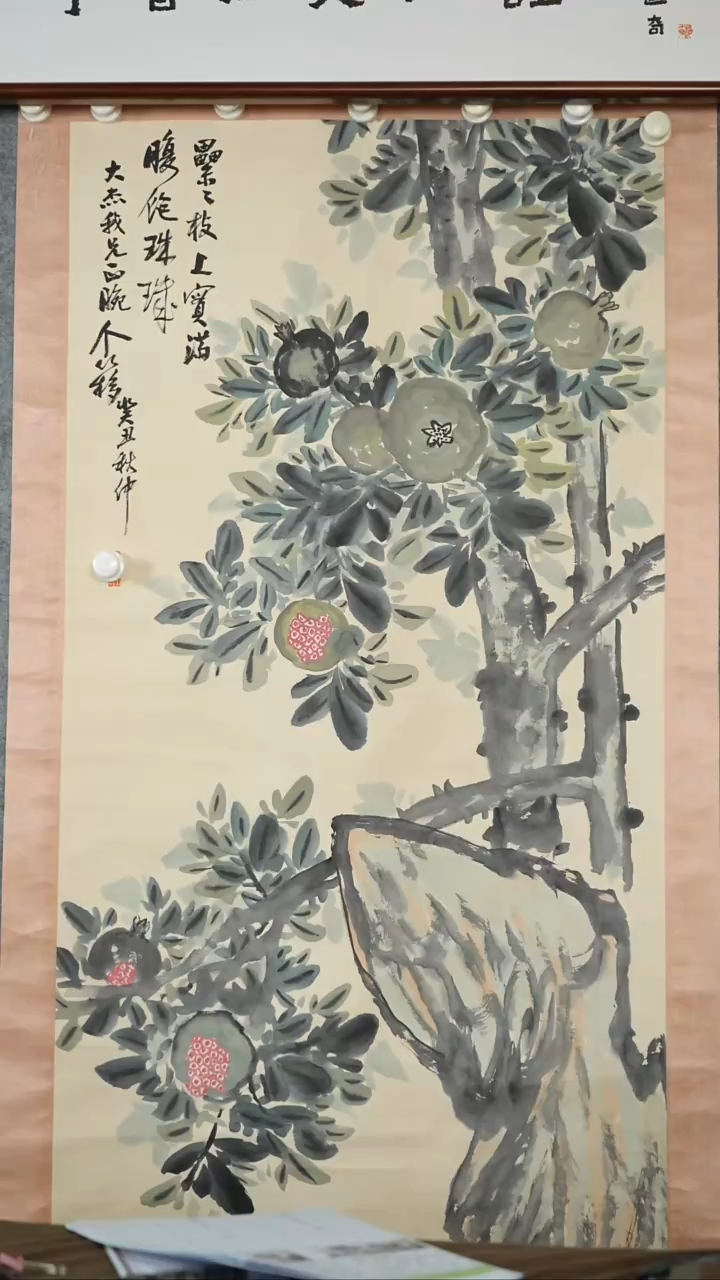 奇
纍〻枝上寳满
腹 珠璣
大杰我兄正腕 个簃 癸丑秋仲